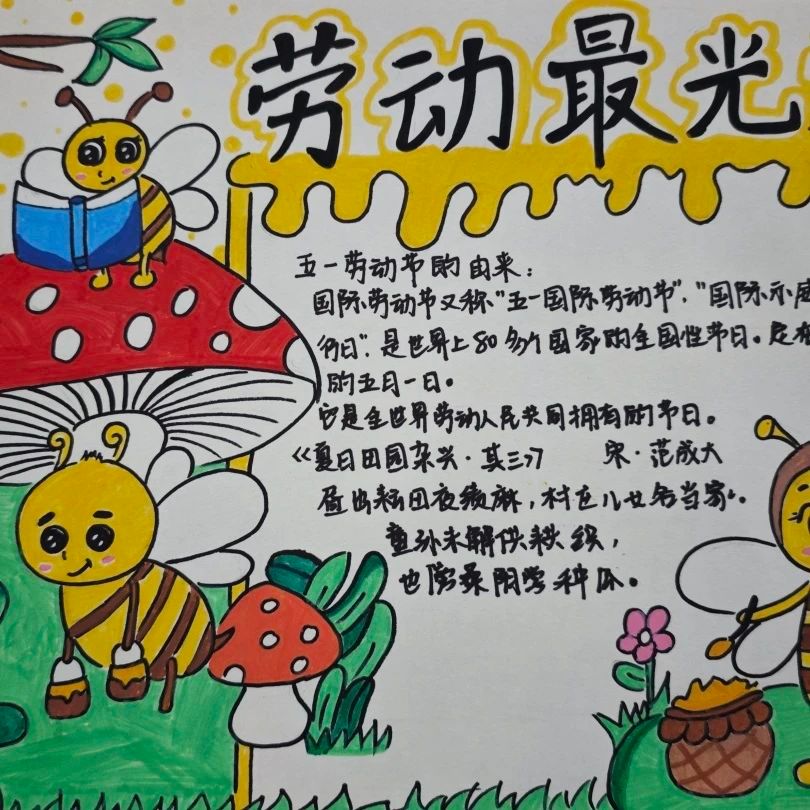 劳动最光
五一劳动节的由来：
国际劳动节又称"五一国际劳动节"、"国际示威
行日"，是世界上80多个国家的全国性节日。定在
的五月一日。
它是全世界劳动人民共同拥有的节日。
《夏日田园杂兴·其三》 宋·范成大
昼出耘田夜绩麻，村庄儿女各当家。
童孙未解供耕织，
也傍桑阴学种瓜。